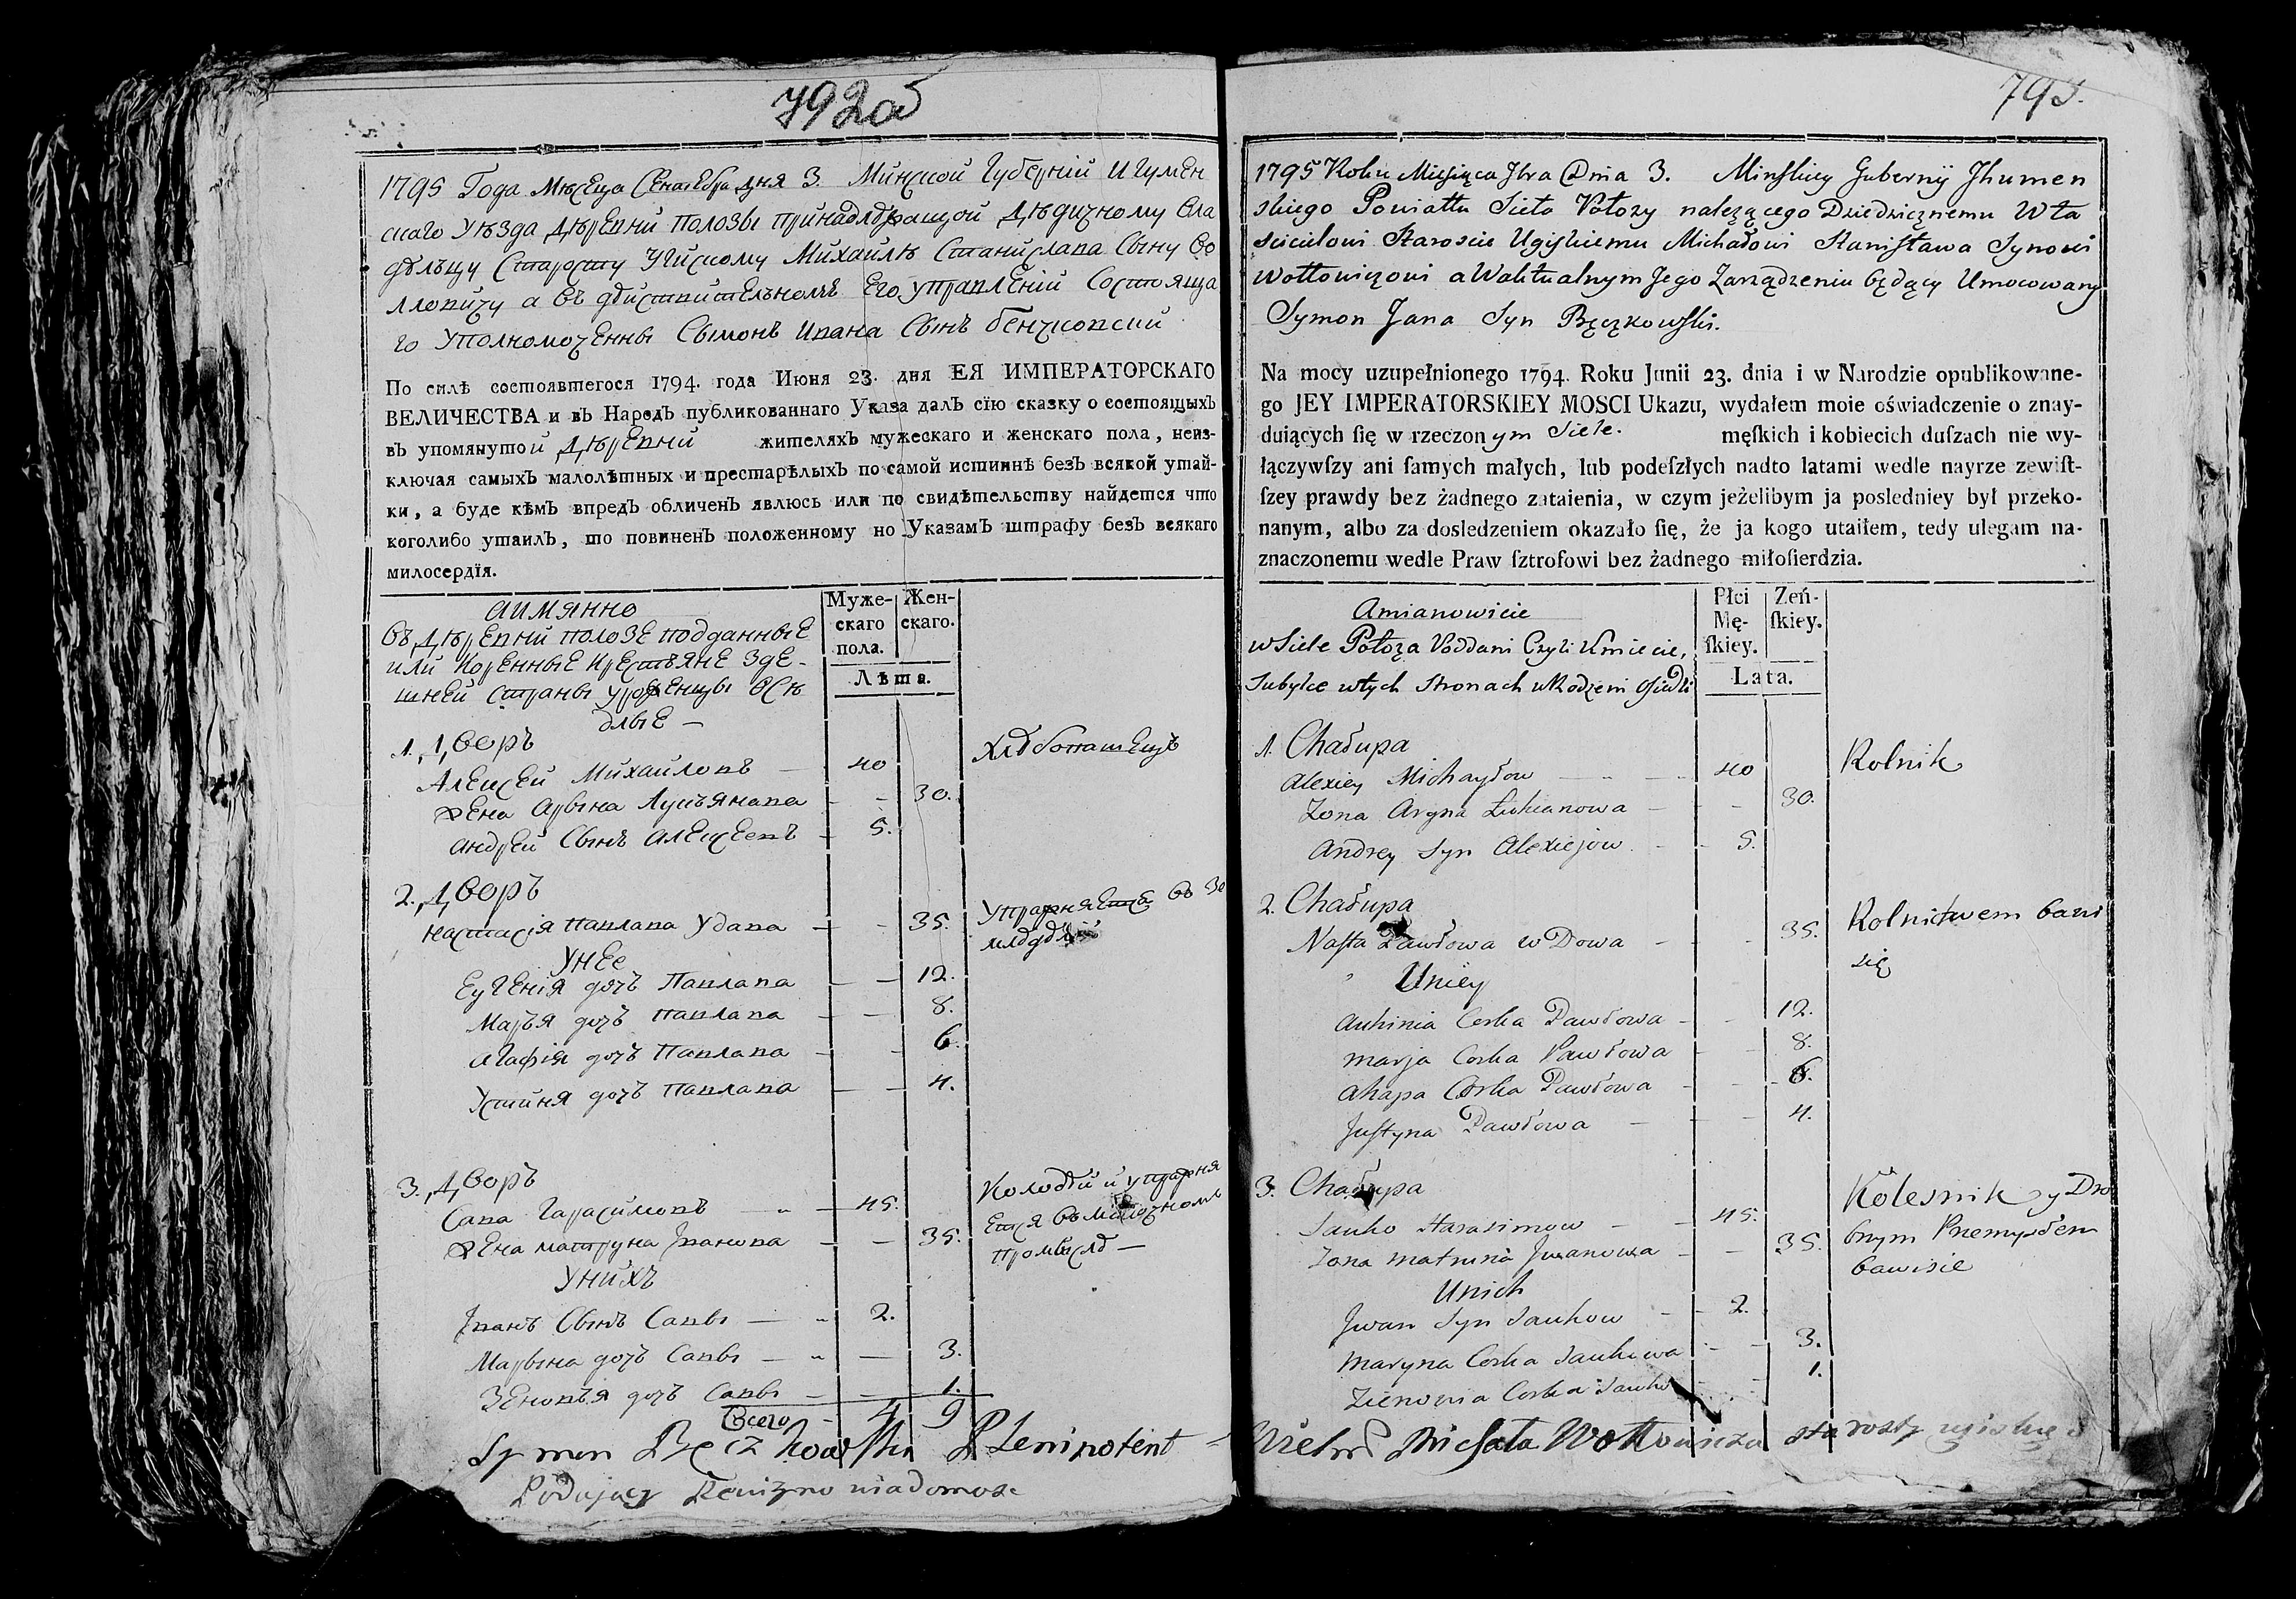 792об
1795 Года Мѣсеца Сентебра дня 3. Минской Губерніи Игумен
скаго Уѣзда Дѣревни Полозы принадлежащой Дѣдичному Вла
дѣльцу Старосту Угискому Михайлѣ Станислава Сыну Во
лловичу а въ действительномъ Его управленіи состояща
го Уполномоченны Сымонъ Ивана Сынъ Бенчковский
По силѣ состоявшегося 1794. года Июня 23. дня ЕЯ ИМПЕРАТОРСКАГО
ВЕЛИЧЕСТВА и въ Народъ публикованнаго Указа далъ сїю сказку о состоящыхъ
въ упомянутой Дѣревни жителяхъ мужескаго и женскаго пола, неиз-
ключая самыхъ малолѣтныхъ и престарѣлыхъ по самой истиннѣ безъ всякой утай-
ки, а буде кѣмъ впредъ обличенъ явлюсь или по свидѣтельству найдется что
коголибо утаилъ, то повиненъ положенному но Указамъ штрафу безъ всякаго
милосердїя.
аимянно
въ Дѣревни Полозе подданные
или коренные крестьяне зде-
шней страны уроженцы осѣ
длые —
Муже-
скаго
пола.
Жен-
скаго.
Лѣта.
1. Дворъ
Алексей Михайловъ — 40 хлебопашецъ
Жена Арына Лукъянава — — 30.
Андрей Сынъ Алексеевъ — 5.
2. Дворъ
Настасія Павлава Удава — — 35. упражняетца въ зе
мледелій
У нее
Еугенія дочъ Павлава — — 12.
Маръя дочъ Павлава — — 8.
Агафія дочъ Павлава — — 6.
Устиня дочъ Павлава — — 4.
3. Дворъ
Сава Гарасимовъ — „ — 45. Колодѣй и упражня
Жена Матруна Іванова — — 35. етця въ мелочномъ
промысле —
У нихъ
Іванъ Сынъ Савы — „ 2.
Марына дочъ Савы — „ — 3.
Зеновъя дочъ Савы — — 1.
Всего — 4 9
Symon Bęczkowski Plenipotent
Podający Rewizną wiadomosc
793.
1795 Roku Miesiąca 7bra Dnia 3. Minskiey Gubernij Jhumen
skiego Powiattu Sieła Połozy należącego Dziedzicznemu Wła
scicielowi Staroscie Ugiskiemu Michałowi Stanisława Synowi
Wołłowiczowi a Waktualnym Jego Zarządzeniu będący Umocowany
Symon Jana Syn Bęczkowski.
Na mocy uzupełnionego 1794. Roku Junii 23. dnia i w Narodzie opublikowane-
go JEY IMPERATORSKIEY MOSCI Ukazu, wydałem moie oświadczenie o znay-
duiących ſię w rzeczonym Siele. męſkich i kobiecich duſzach nie wy-
łączywſzy ani ſamych małych, lub podeſzłych nadto latami wedle nayrze zewiſt-
ſzey prawdy bez żadnego zataienia, w czym jeżelibym ja posledniey był przeko-
nanym, albo za dosledzeniem okazało ſię, że ja kogo utaiłem, tedy ulegam na-
znaczonemu wedle Praw ſztrofowi bez żadnego miłoſierdzia.
Amianowicie
w Siele Połoza Poddani Czyli Kmiecie,
Subylce wtych stronach uRodzeni Osiedli
Płci
Mę-
ſkiey.
Zeń-
ſkiey.
Lata.
1. Chałupa
Alexiey Michayłow — „ — 40 Rolnik
Zona Aryna Łukianowa — — 30.
Andrey Syn Alexiejow. — 5.
2. Chałupa
Nasta Pawłowa wDowa — — 35. Rolnictwem bawi
się
Uniey
Auhinia Corka Pawłowa — — 12.
Marja Corka Pawłowa — 8.
Ahapa Corka Pawłowa — — 6.
Justyna Pawłowa — — 4.
3. Chałupa
Sauko Harasimow — — 45. Kolesnik y Dro
Zona Matruna Jwanowa — — 35. bnym Przemysłem
bawisie
Unich
Jwan Syn Saukow — 2.
Maryna Corka Saukowa — — 3.
Zienowia Corka Sauko — 1.
Wielm Michała Wołłowicza starosty ugiskiego